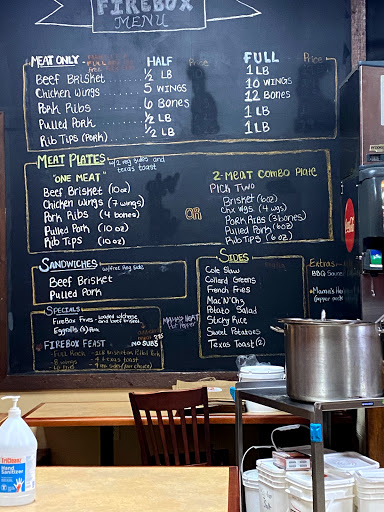 FIREBOX
MENU
MEAT ONLY - HALF Price FULL Price
Beef Brisket ½ LB 1 LB
Chicken Wings 5 WINGS 10 WINGS
Pork Ribs 6 Bones 12 Bones
Pulled Pork ½ LB 1 LB
Rib Tips (Pork) ½ LB 1 LB
MEAT PLATES - w/2 reg sides and texas toast
"ONE MEAT"
Beef Brisket (10 oz)
Chicken Wings (7 wings)
Pork Ribs (4 bones)
Pulled Pork (10 oz)
Rib Tips (10 oz)
OR
2-MEAT COMBO PLATE
PICK TWO
Brisket (6oz)
Chx Wgs (4 wgs)
Pork Ribs (3 bones)
Pulled Pork (6oz)
Rib Tips (6 oz)
SANDWICHES w/free reg side
Beef Brisket
Pulled Pork
SPECIALS
FireBox Fries - loaded w/cheese and beef brisket
Eggrolls
FIREBOX FEAST NO SUBS
SIDES
Cole Slaw
Collard Greens
French Fries
Mac 'N Chz
Potato Salad
Sticky Rice
Sweet Potatoes
Texas Toast (2)
Extras
BBQ Sauce
Mama's
TriClean
Hand
Sanitizer